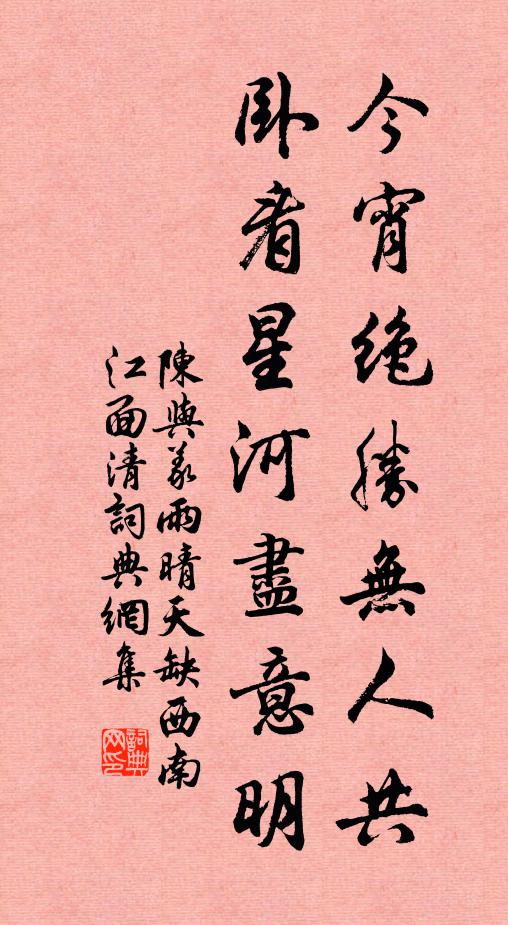 今宵絶勝無人共
卧看星河盡意明
陳與義雨晴天缺西南
江面清詞典網集
詞典
网印